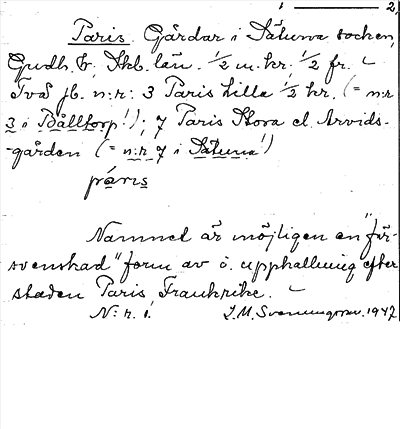 1 ——— 2.
Paris. Gårdar i Sätuna socken,
Gudh. H., Skb. län. 1/2 m. kr. 1/2 fr.
Två jb. n:r: 3 Paris Lilla 1/2 kr. (= n:r
3 i Bålltorp!); 7 Paris Stora el. Arvids-
-gården (= n:r 7 i Sätuna!)
páris
Namnet är möjligen en "för-
svenskad" form av ö. uppkallning efter
staden Paris, Frankrike.
N:r. 1. J.M. Svenungsson. 1947